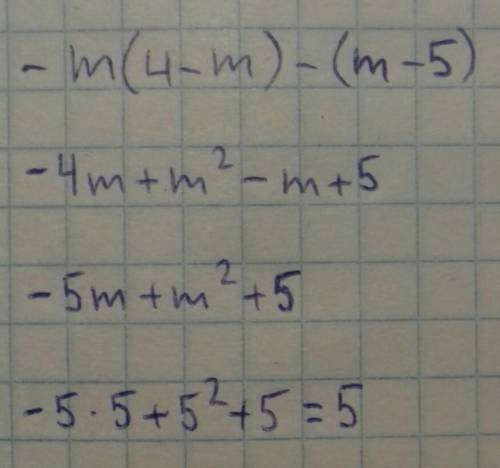 - m(4-m)-(m-5)
-4m+m²-m+5
-5m+m²+5
-5·5+5²+5=5